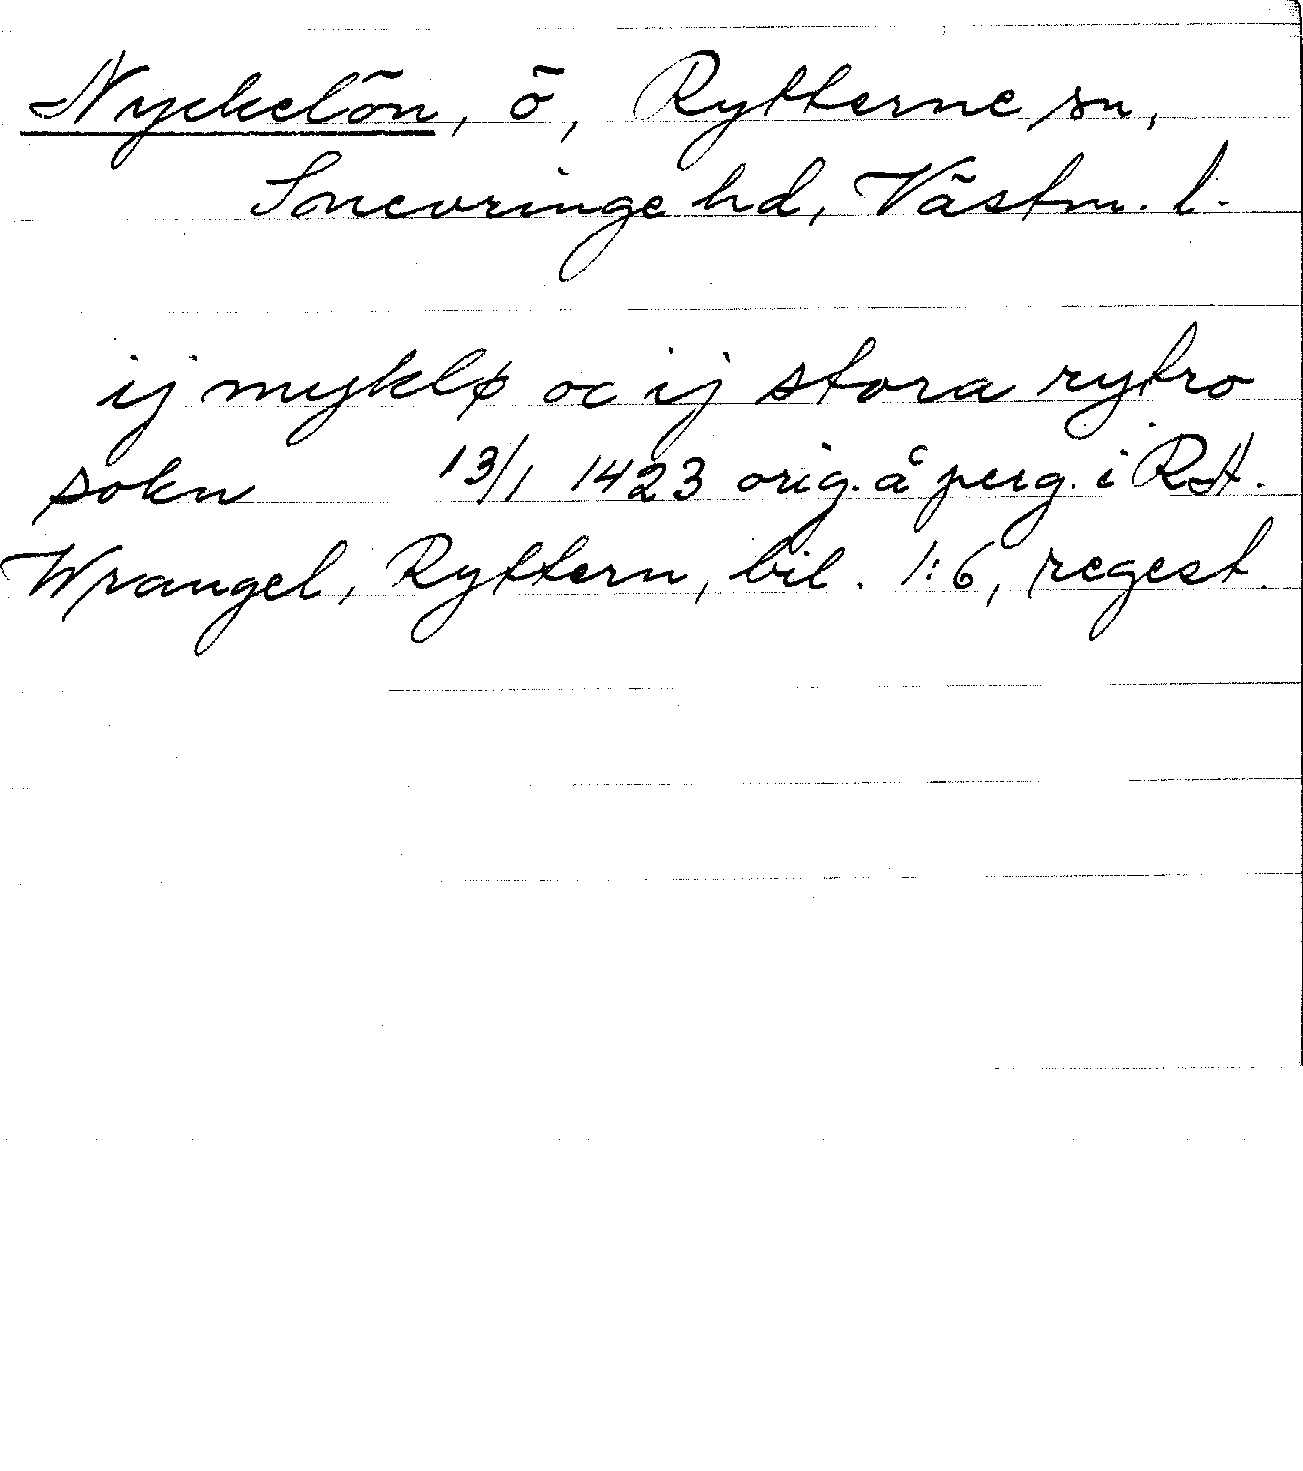 Nyckelön, ö, Rytterne sn,
Snevringe hd, Västm. l.
ij myklø oc ij stora rytro
sokn 13/1 1423 orig. å perg. i RA.
Wrangel, Ryttern, bil. 1:6, regest.